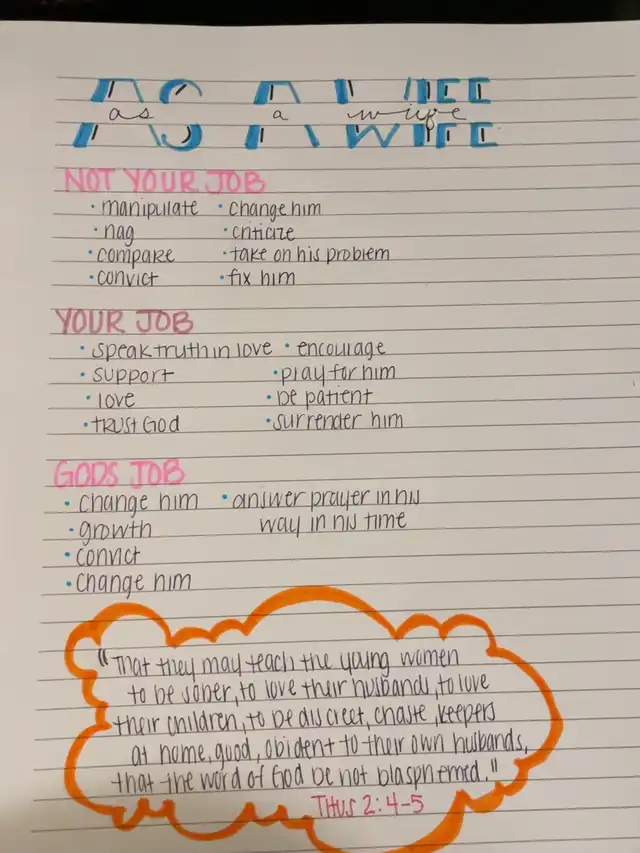 AS A WIFE
as a wife
NOT YOUR JOB
• manipulate • change him
• nag • criticize
• compare • take on his problem
• convict • fix him
YOUR JOB
• speak truth in love • encourage
• support • pray for him
• love • be patient
• trust God • surrender him
GODS JOB
• change him • answer prayer in his
• growth way in his time
• convict
• change him
"That they may teach the young women
to be sober, to love their husbands, to love
their children, to be discreet, chaste, keepers
at home, good, obident to their own husbands,
that the word of God be not blasphemed."
TITUS 2:4-5